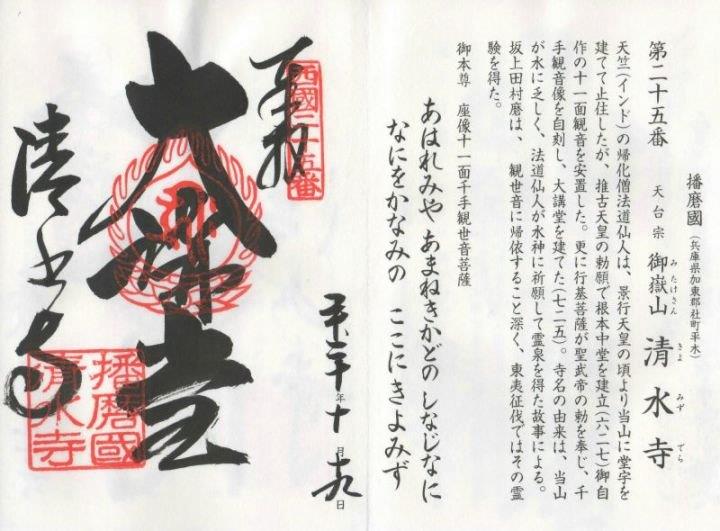 播磨國(兵庫県加東郡社町平木)
第二十五番 天台宗 御嶽山 清水寺
みたけさん きよ みず でら
天竺(インド)の帰化僧法道仙人は、景行天皇の頃より当山に堂宇を
建てて止住したが、推古天皇の勅願で根本中堂を建立(六二七)御自
作の十一面観音を安置した。更に行基菩薩が聖武帝の勅を奉じ、千
手観音像を自刻し、大講堂を建てた(七二五)。寺名の由来は、当山
が水に乏しく、法道仙人が水神に祈願して霊泉を得た故事による。
坂上田村磨は、観世音に帰依すること深く、東夷征伐ではその霊
験を得た。
御本尊 座像十一面千手観世音菩薩
あはれみや あまねきかどの しなじなに
なにをかなみの ここにきよみず
年十月十九日
西國二十五番
奉拝
清水寺
播磨國
清水寺